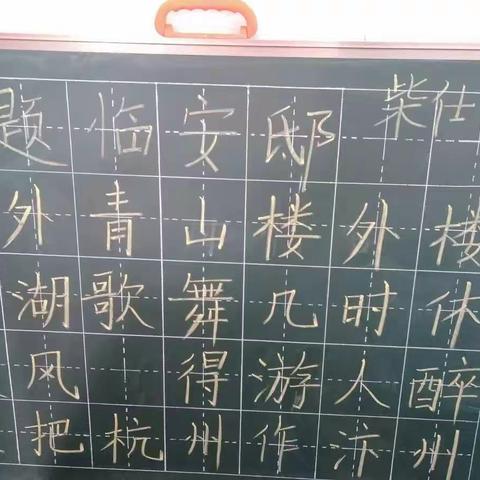 题临安邸 柴仕
外青山楼外楼
湖歌舞几时休
风 得游人醉
把杭州作汴州